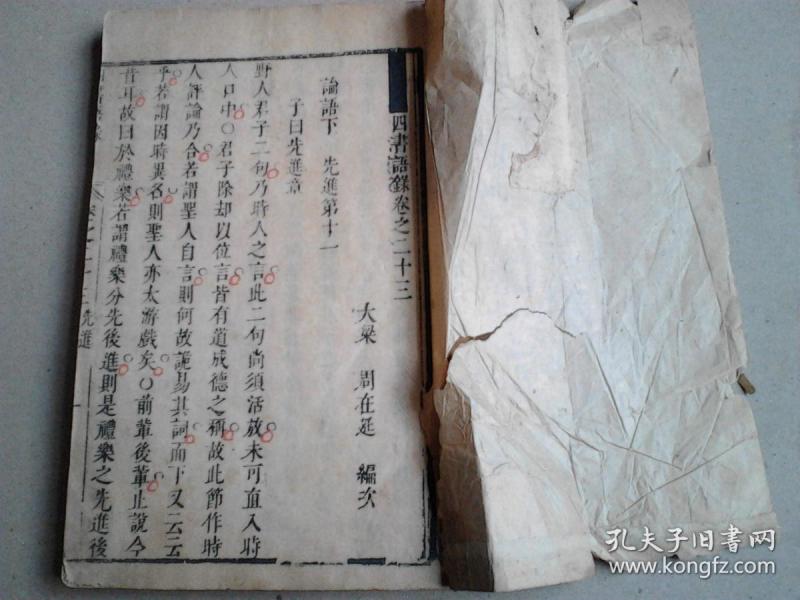 四書語錄卷之二十三
大梁 周在延 編次
論語下 先進第十一
子曰先進章
野人君子二句乃時人之言此二句尚須活放未可直入時
人口中〇君子除却以位言皆有道成德之稱故此節作時
人評論乃合若謂聖人自言則何故詭易其詞而下又云云
乎若謂因時異名則聖人亦太游戲矣〇前輩後輩止說今
昔耳故曰於禮樂若謂禮樂分先後進則是禮樂之先進後
卷之二十三先進
孔夫子旧书网
www.kongfz.com